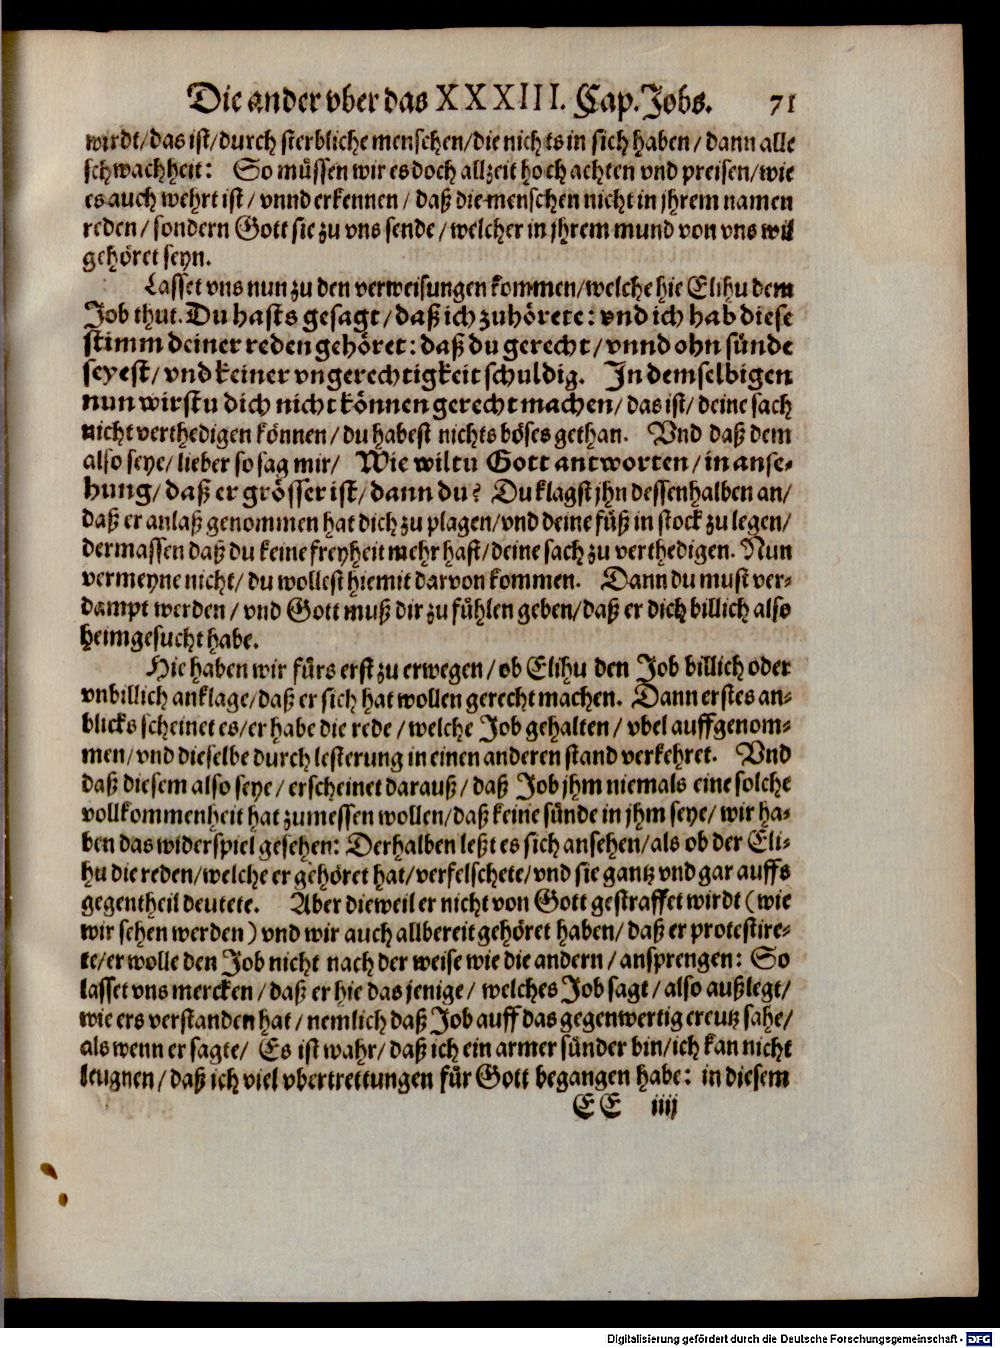 Die ander vber das XXXIII. Cap. Jobs. 71
wirdt/das ist/durch sterbliche menschen/die nichts in sich haben/dann alle
schwachheit: So müssen wir es doch allzeit hoch achten vnd preisen/wie
es auch wehrt ist/ vnnd erkennen/ daß die menschen nicht in jhrem namen
reden/ sondern Gott sie zu vns sende/welcher in jhrem mund von vns wil
gehöret seyn.
Lasset vns nun zu den verweisungen kommen/welche hie Elihu dem
Job thut. Du hasts gesagt/daß ich zuhörete: vnd ich hab diese
stimm deiner reden gehöret: daß du gerecht/vnnd ohn sünde
seyest/vnd keiner vngerechtigkeit schuldig. In demselbigen
nun wirstu dich nicht können gerecht machen/das ist/deine sach
nicht verthedigen können/du habest nichts böses gethan. Vnd daß dem
also seye/lieber so sag mir/ Wie wiltu Gott antworten/in anse-
hung/daß er grösser ist/dann du? Du klagst jhn dessenhalben an/
daß er anlaß genommen hat dich zu plagen/vnd deine füß in stock zu legen/
dermassen daß du keine freyheit mehr hast/deine sach zu verthedigen. Nun
vermeyne nicht/du wollest hiemit darvon kommen. Dann du must ver-
dampt werden/vnd Gott muß dir zu fühlen geben/daß er dich billich also
heimgesucht habe.
Hie haben wir fürs erst zu erwegen/ob Elihu den Job billich oder
vnbillich anklage/daß er sich hat wollen gerecht machen. Dann erstes an-
blicks scheinet es/er habe die rede/welche Job gehalten/ vbel auffgenom-
men/vnd dieselbe durch lesterung in einen anderen stand verkehret. Vnd
daß diesem also seye/erscheinet darauß/daß Job jhm niemals eine solche
vollkommenheit hat zumessen wollen/daß keine sünde in jhm seye/wir ha-
ben das widerspiel gesehen: Derhalben leßt es sich ansehen/als ob der Eli-
hu die reden/welche er gehöret hat/verfelschete/vnd sie gantz vnd gar auffs
gegentheil deutete. Aber dieweil er nicht von Gott gestraffet wirdt (wie
wir sehen werden) vnd wir auch allbereit gehöret haben/daß er protestire-
te/er wolle den Job nicht nach der weise wie die andern/ansprengen: So
lasset vns mercken/daß er hie das jenige/welches Job sagt/also außlegt/
wie ers verstanden hat/nemlich daß Job auff das gegenwertig creutz sahe/
als wenn er sagte/ Es ist wahr/daß ich ein armer sünder bin/ich kan nicht
leugnen/daß ich viel vbertrettungen für Gott begangen habe: in diesem
EE iiij
Digitalisierung gefördert durch die Deutsche Forschungsgemeinschaft - DFG